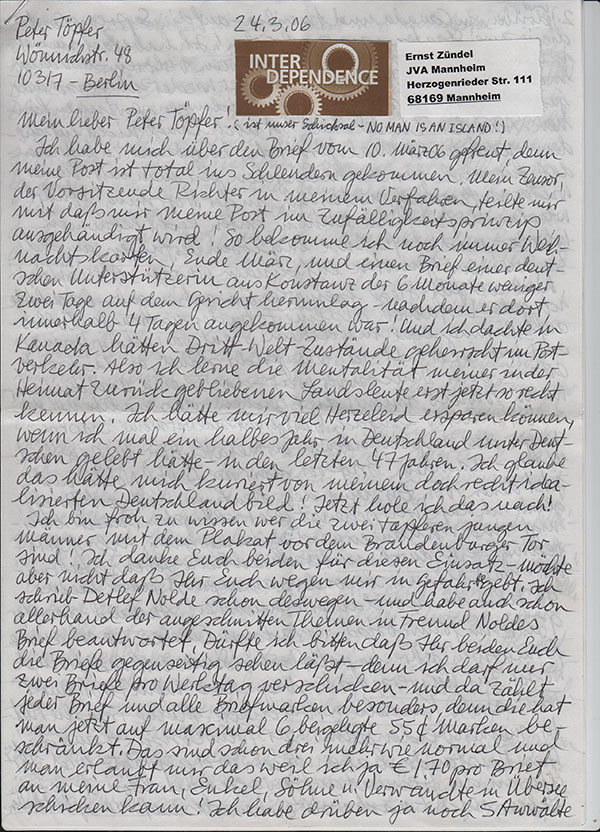 Peter Töpfer
Wönnichstr. 48
10317 - Berlin
24.3.06
INTER
DEPENDENCE
Ernst Zündel
JVA Mannheim
Herzogenrieder Str. 111
68169 Mannheim
Mein lieber Peter Töpfer! (ist unser Schicksal - NO MAN IS AN ISLAND!)
Ich habe mich über den Brief vom 10. März 06 gefreut, denn
meine Post ist total ins Schleudern gekommen. Mein Zensor,
der Vorsitzende Richter in meinem Verfahren, teilte mir
mit daß mir meine Post im Zufälligkeitsprinzip
ausgehändigt wird! So bekomme ich noch immer Weih-
nachtskarten, Ende März, und einen Brief einer deut-
schen Unterstützerin aus Konstanz der 6 Monate weniger
zwei Tage auf dem Gericht herumlag - nachdem er dort
innerhalb 4 Tagen angekommen war! Und ich dachte in
Kanada hätten Dritt-Welt-Zustände geherrscht im Post-
verkehr. Also ich lerne die Mentalität meiner in der
Heimat zurückgebliebenen Landsleute erst jetzt so recht
kennen. Ich hätte mir viel Herzeleid ersparen können,
wenn ich mal ein halbes Jahr in Deutschland unter Deut-
schen gelebt hätte - in den letzten 47 Jahren. Ich glaube
das hätte mich kuriert von meinem doch recht idea-
lisierten Deutschlandbild! Jetzt hole ich das nach!
Ich bin froh zu wissen wer die zwei tapferen jungen
Männer mit dem Plakat vor dem Brandenburger Tor
sind! Ich danke Euch beiden für diesen Einsatz - möchte
aber nicht daß Ihr Euch wegen mir in Gefahr gebt. Ich
schrieb Detlef Nolde schon deswegen - und habe auch schon
allerhand der angeschnittenen Themen in Freund Noldes
Brief beantwortet. Dürfte ich bitten daß Ihr beiden Euch
die Briefe gegenseitig sehen läßt - denn ich darf nur
zwei Briefe pro Werktag verschicken - und da zählt
jeder Brief und alle Briefmarken besonders, denn die hat
man jetzt auf maximal 6 beigelegte 55¢ Marken be-
schränkt. Das sind schon drei mehr wie normal und
man erlaubt mir das weil ich ja € 1,70 pro Brief
an meine Frau, Enkel, Söhne u. Verwandte in Übersee
schicken kann! Ich habe drüben ja noch 5 Anwälte